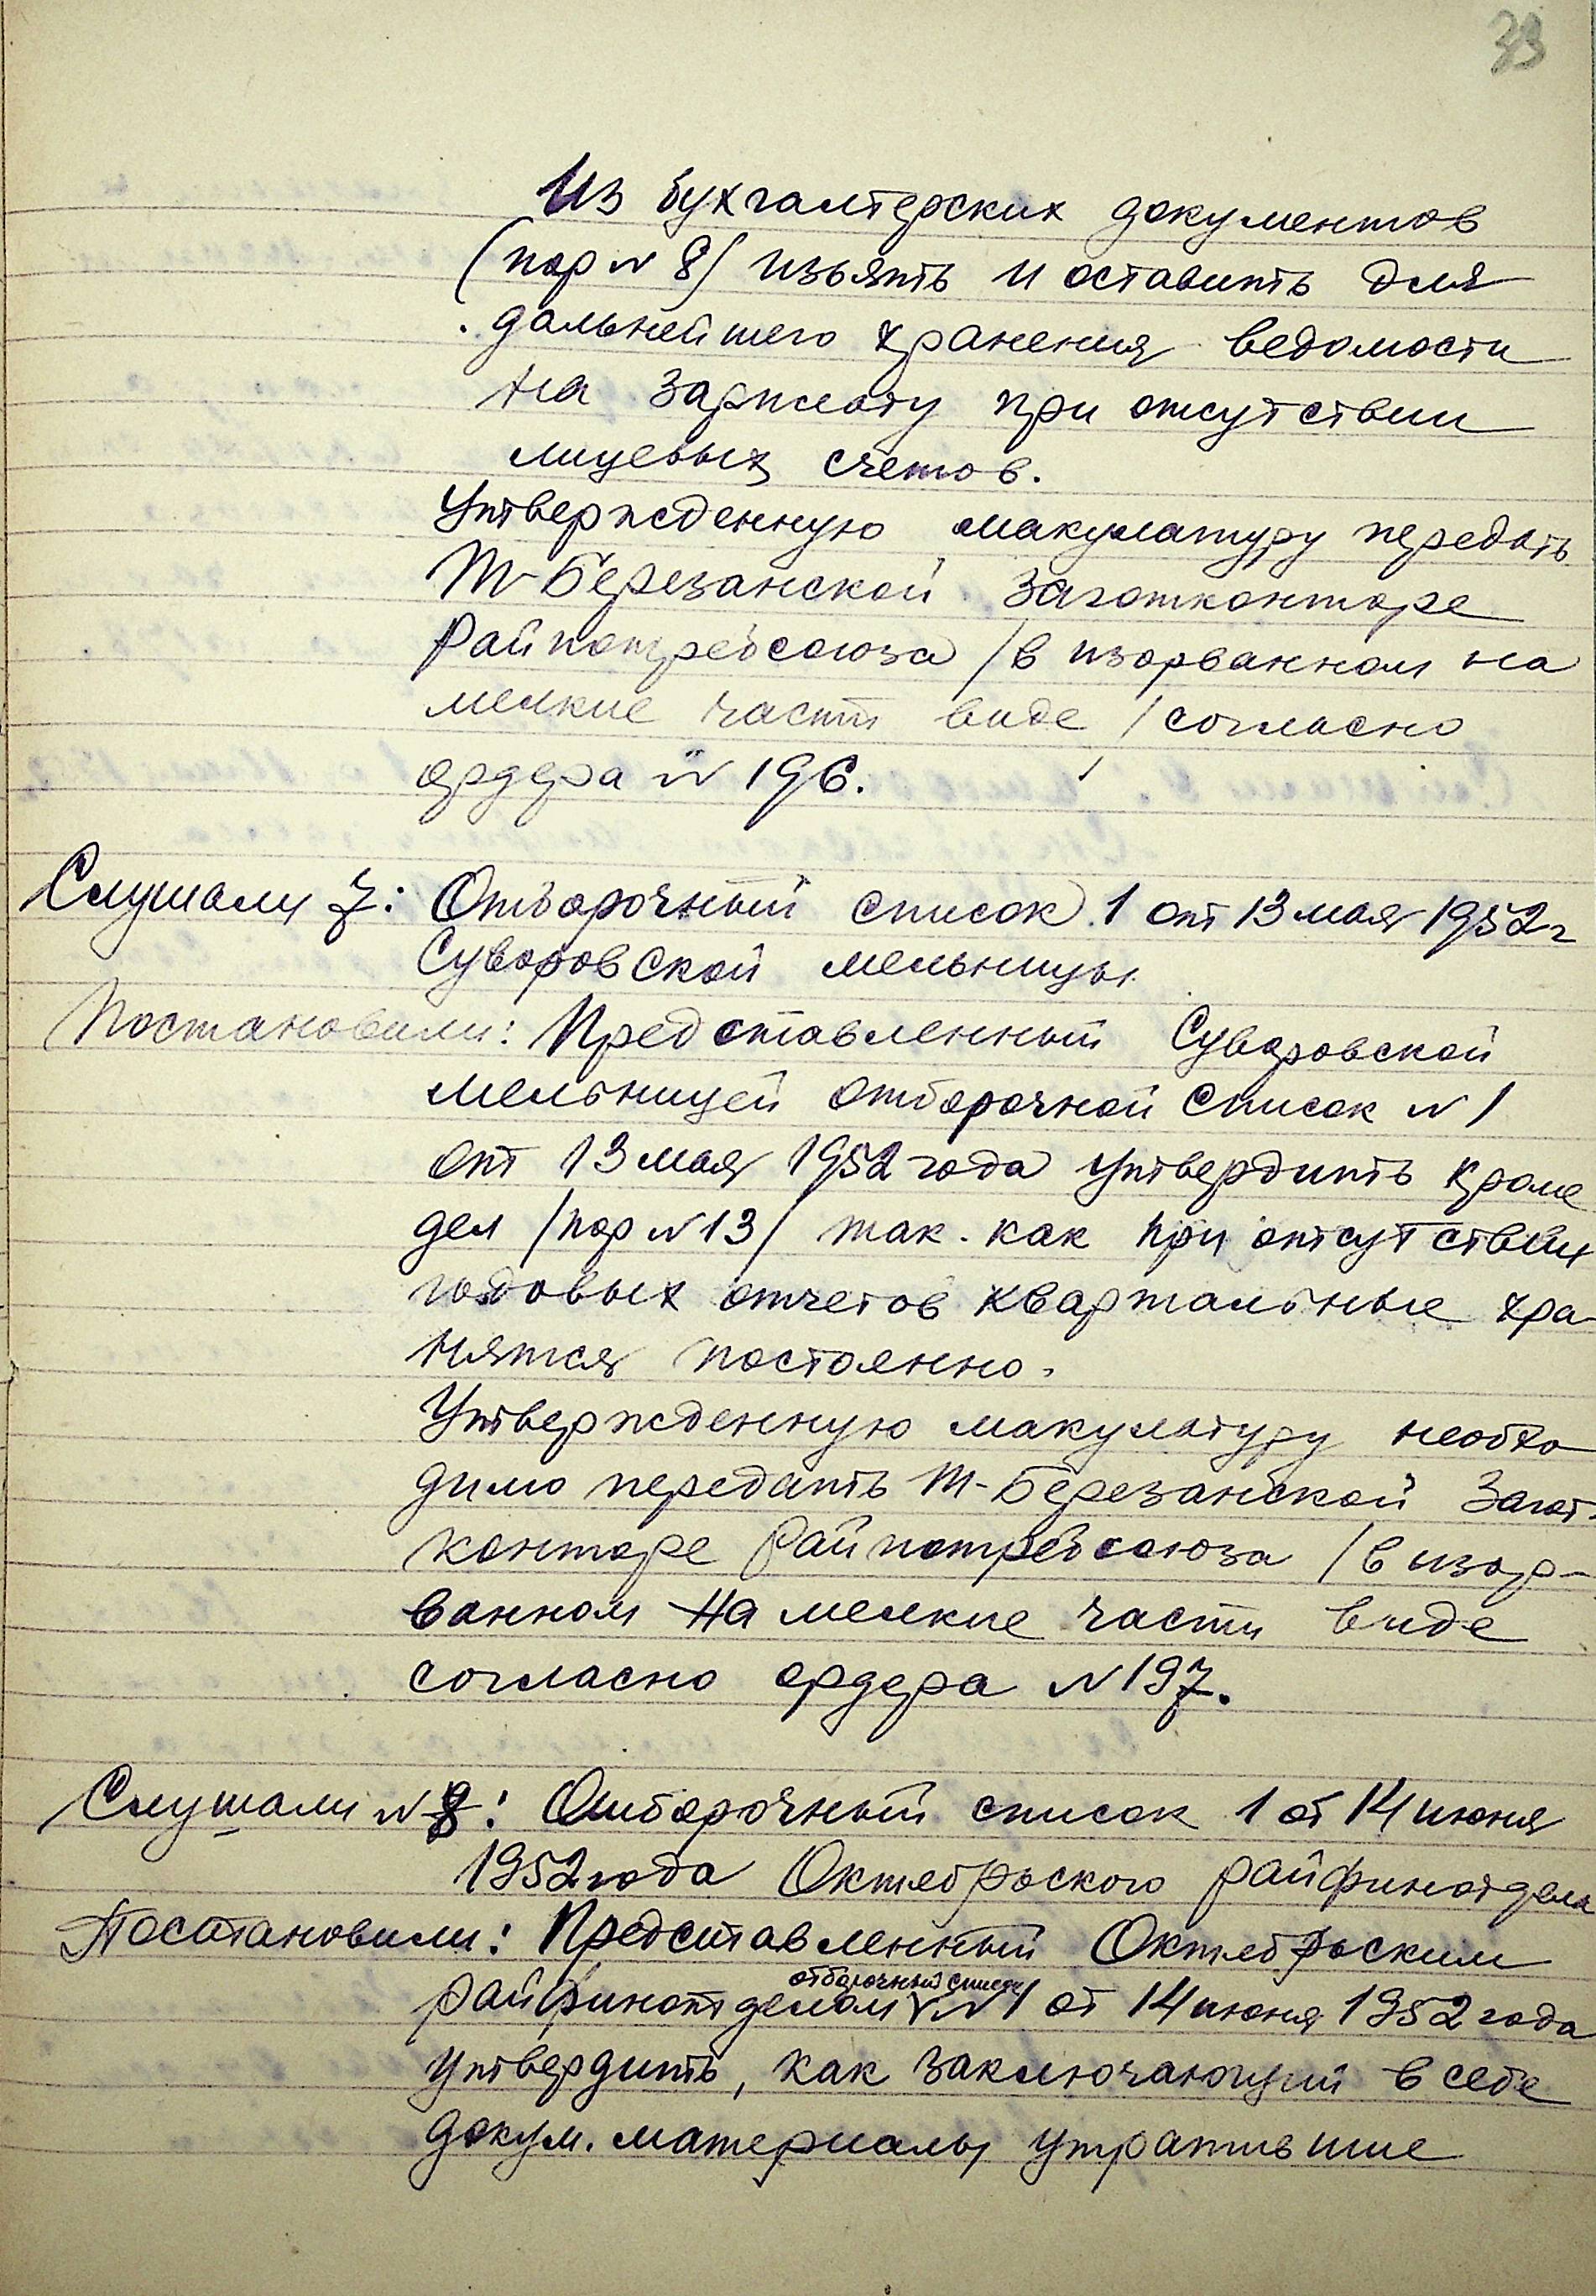 33
Из бухгалтерских документов
(пор N 8/ изъять и оставить для
дальнейшего хранения ведомости
на зарплату при отсутствии
лицевых счетов.
Утвержденную макулатуру передать
Т-Березанской Заготконторе
Райпотребсоюза /в изорванном на
мелкие части виде / согласно
ордера N 196.
Слушали 7: Отборочный список 1 от 13 мая 1952 г
Суворовской мельницы.
Постановили: Представленный Суворовской
мельницей отборочной список N 1
от 13 мая 1952 года утвердить кроме
дел /пор N 13/ так. как при отсутствии
годовых отчетов квартальные хра-
нятся постоянно.
Утвержденную макулатуру необхо
димо передать Т-Березанской Загот-
конторе Райпотребсоюза /в изор-
ванном на мелкие части виде
согласно ордера N 197.
Слушали N 8: Отборочный список 1 от 14 июня
1952 года Октябрьского райфинотдела
Постановили: Представленный Октябрьским
отборочный список
райфинотделом N 1 от 14 июня 1952 года
утвердить, как заключающий в себе
докум. материалы утратившие